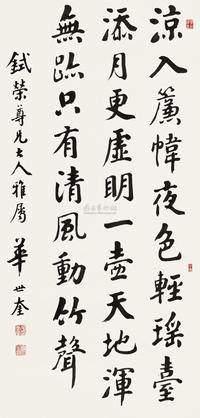 涼入簾幃夜色輕瑶臺
添月更虛明一壺天地渾
無跡只有清風動竹聲
鉽榮尊兄大人雅屬
華世奎